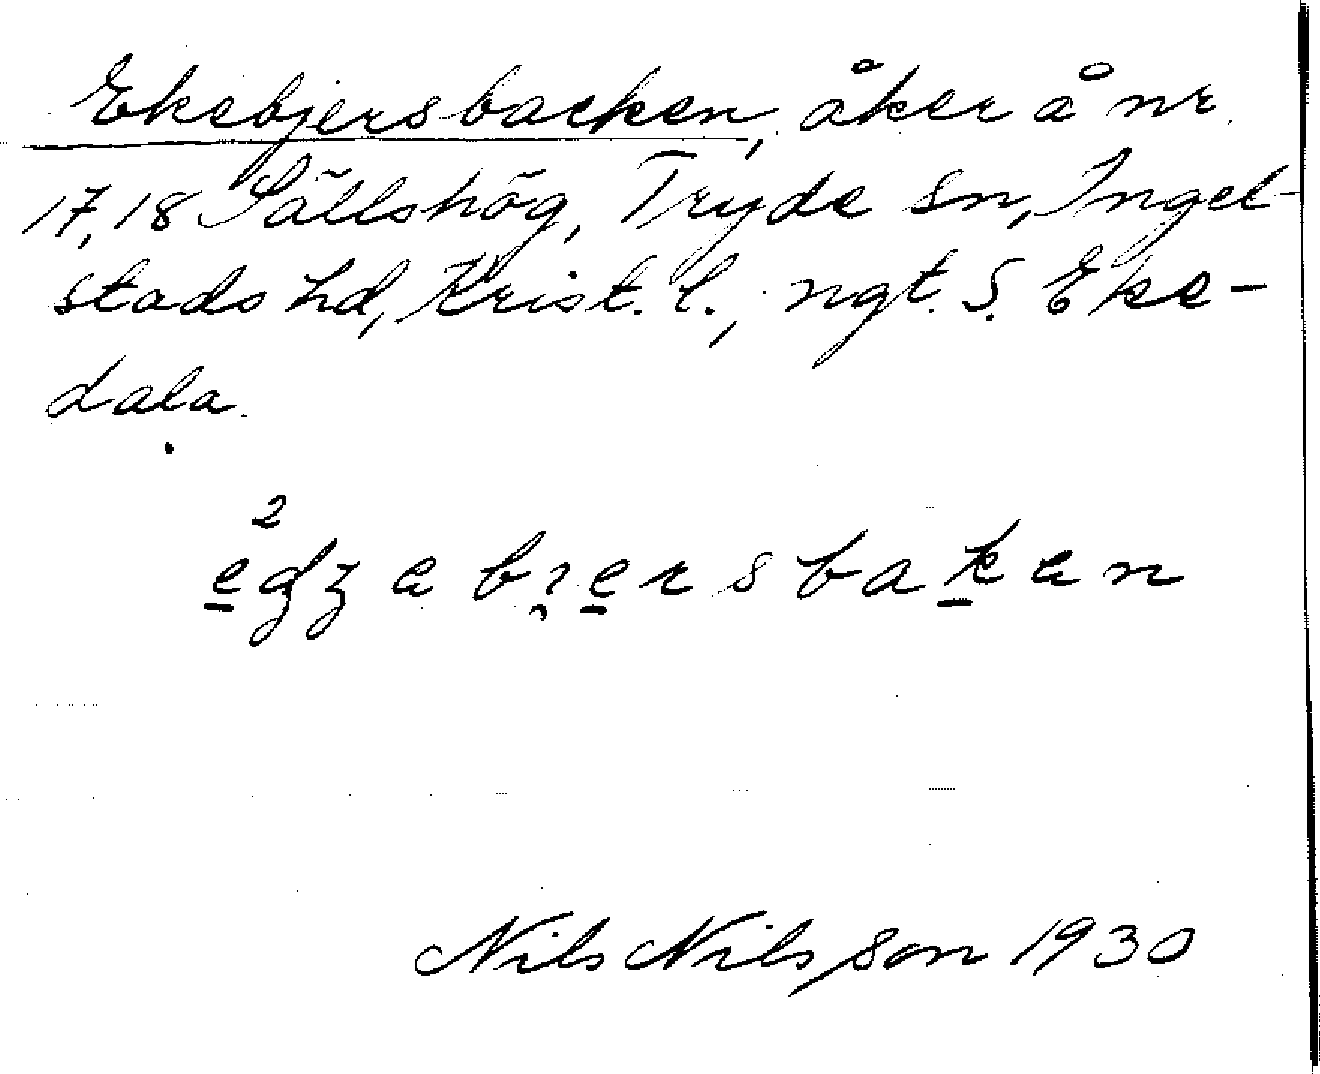 Ekebjersbacken, åker å nr
17,18 Sällshög, Tryde sn, Ingel-
stads hd, Krist. l., ngt. S. Eke-
dala.
Nils Nilsson 1930